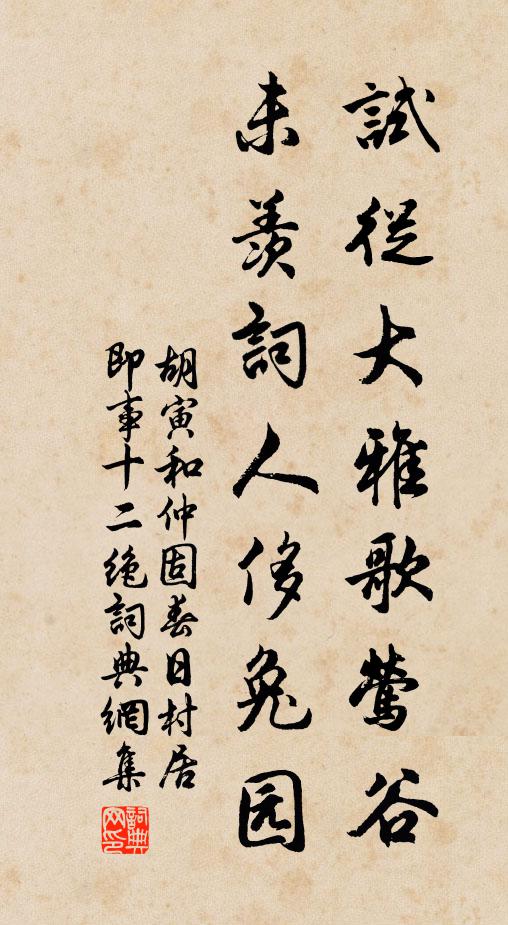 試從大雅歌鶯谷
未羨詞人侈兔园
胡寅和仲固春日村居
即事十二绝詞典網集
詞典网印